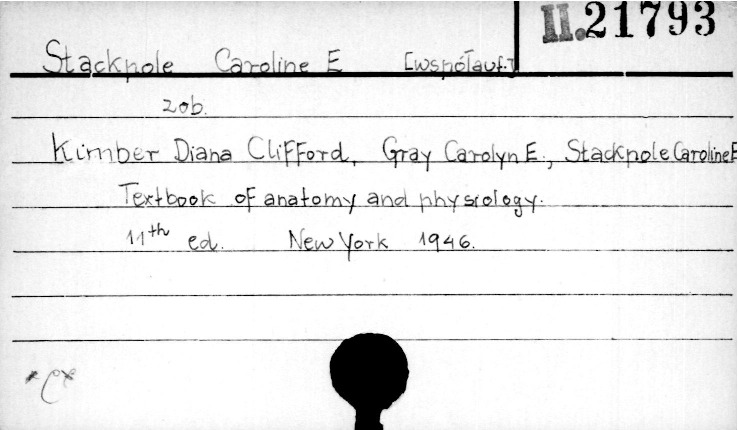 II.21793
Stackpole Caroline E [współaut.]
zob.
Kimber Diana Clifford, Gray Carolyn E., Stackpole Caroline E
Textbook of anatomy and physiology.
11th ed. New York 1946.